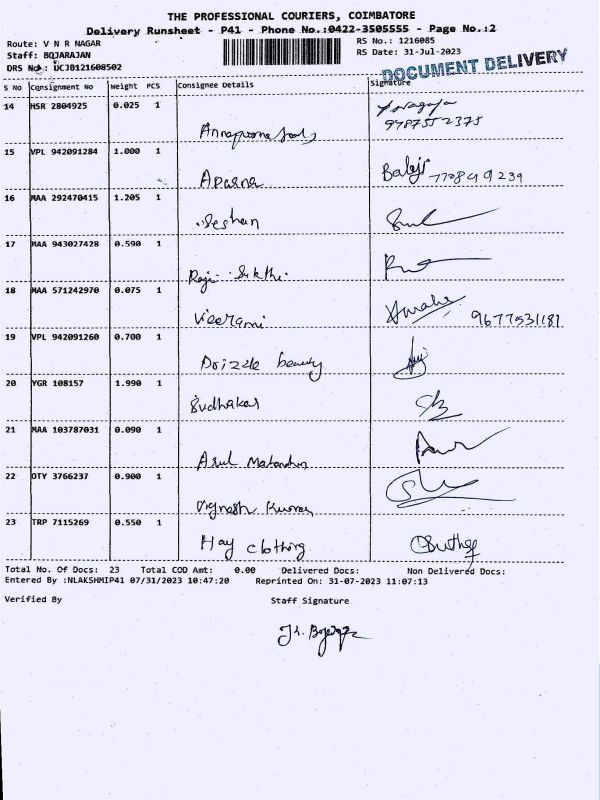 THE PROFESSIONAL COURIERS, COIMBATORE
Delivery Runsheet - P41 - Phone No.:0422-3505555 - Page No.:2
Route: V N R NAGAR RS No.: 1216085
Staff: BOJARAJAN RS Date: 31-Jul-2023
DRS No.: UCJB121608502 DOCUMENT DELIVERY
S No Consignment No Weight PCS Consignee Details Signature
14 HSR 2804925 0.025 1
9787552375
15 VPL 942091284 1.000 1
Aparna Balaji
16 MAA 292470415 1.205 1
Seshan
17 MAA 943027428 0.590 1
Raji Sakthi
18 MAA 571242970 0.075 1
9677531181
19 VPL 942091260 0.700 1
Drizzle beauty
20 YGR 108157 1.990 1
Sudhakar
21 MAA 103787031 0.090 1
Arul
22 OTY 3766237 0.900 1
Vignesh Kumar
23 TRP 7115269 0.550 1
Hay clothing
Total No. Of Docs: 23 Total COD Amt: 0.00 Delivered Docs: Non Delivered Docs:
Entered By :NLAKSHMIP41 07/31/2023 10:47:20 Reprinted On: 31-07-2023 11:07:13
Verified By Staff Signature